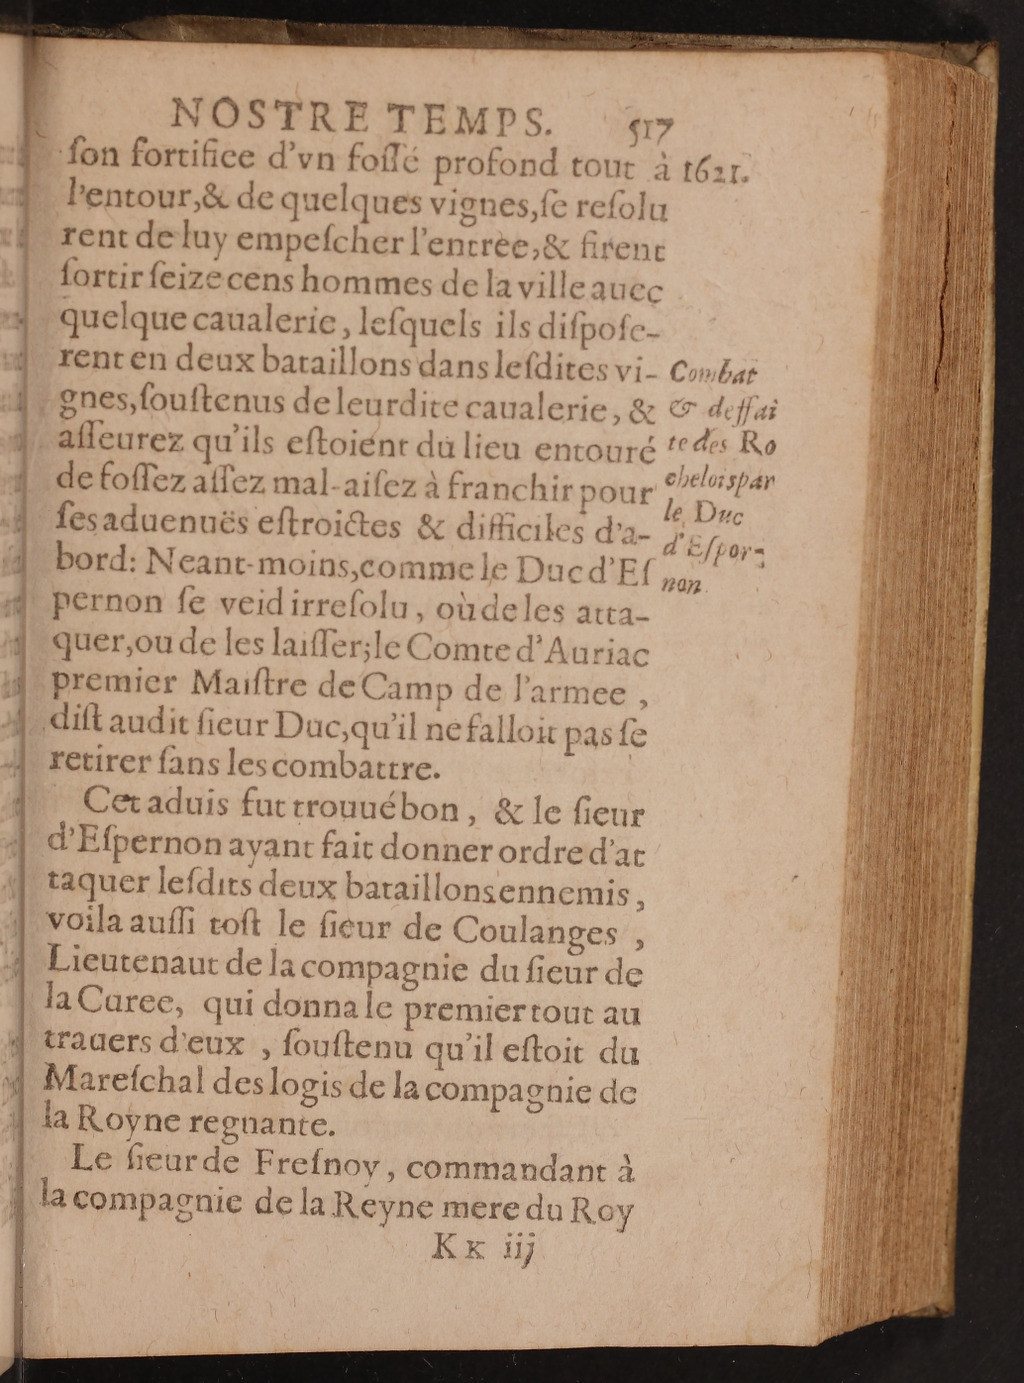 NOSTRE TEMPS. 517
ſon fortifiee d'vn foſſé profond tout à
1621.
l'entour,& de quelques vignes,ſe reſolu
rent de luy empeſcher l'entree,& firent
ſortir ſeize cens hommes de la ville auec
quelque caualerie, leſquels ils diſpoſe-
rent en deux bataillons dans leſdites vi-
gnes,ſouſtenus de leurdite caualerie, &
aſſeurez qu'ils eſtoient du lieu entouré
de foſſez aſſez mal-aiſez à franchir pour
ſes aduenuës eſtroictes & difficiles d'a-
bord: Neant-moins,comme le Duc d'Eſ
pernon ſe veid irreſolu, où de les atta-
quer,ou de les laiſſer;le Comte d'Auriac
premier Maiſtre de Camp de l'armee ,
diſt audit ſieur Duc,qu'il ne falloit pas ſe
retirer ſans les combattre.
Combat
& deffai
te des Ro
chelois par
le Duc
d'Eſper-
non
Cet aduis fut trouué bon, & le ſieur
d'Eſpernon ayant fait donner ordre d'at
taquer leſdits deux bataillons ennemis,
voila auſſi toſt le ſieur de Coulanges ,
Lieutenaut de la compagnie du ſieur de
la Curee, qui donna le premier tout au
trauers d'eux , ſouſtenu qu'il eſtoit du
Mareſchal des logis de la compagnie de
la Royne regnante.
Le ſieur de Freſnoy, commandant à
la compagnie de la Reyne mere du Roy
K k iij